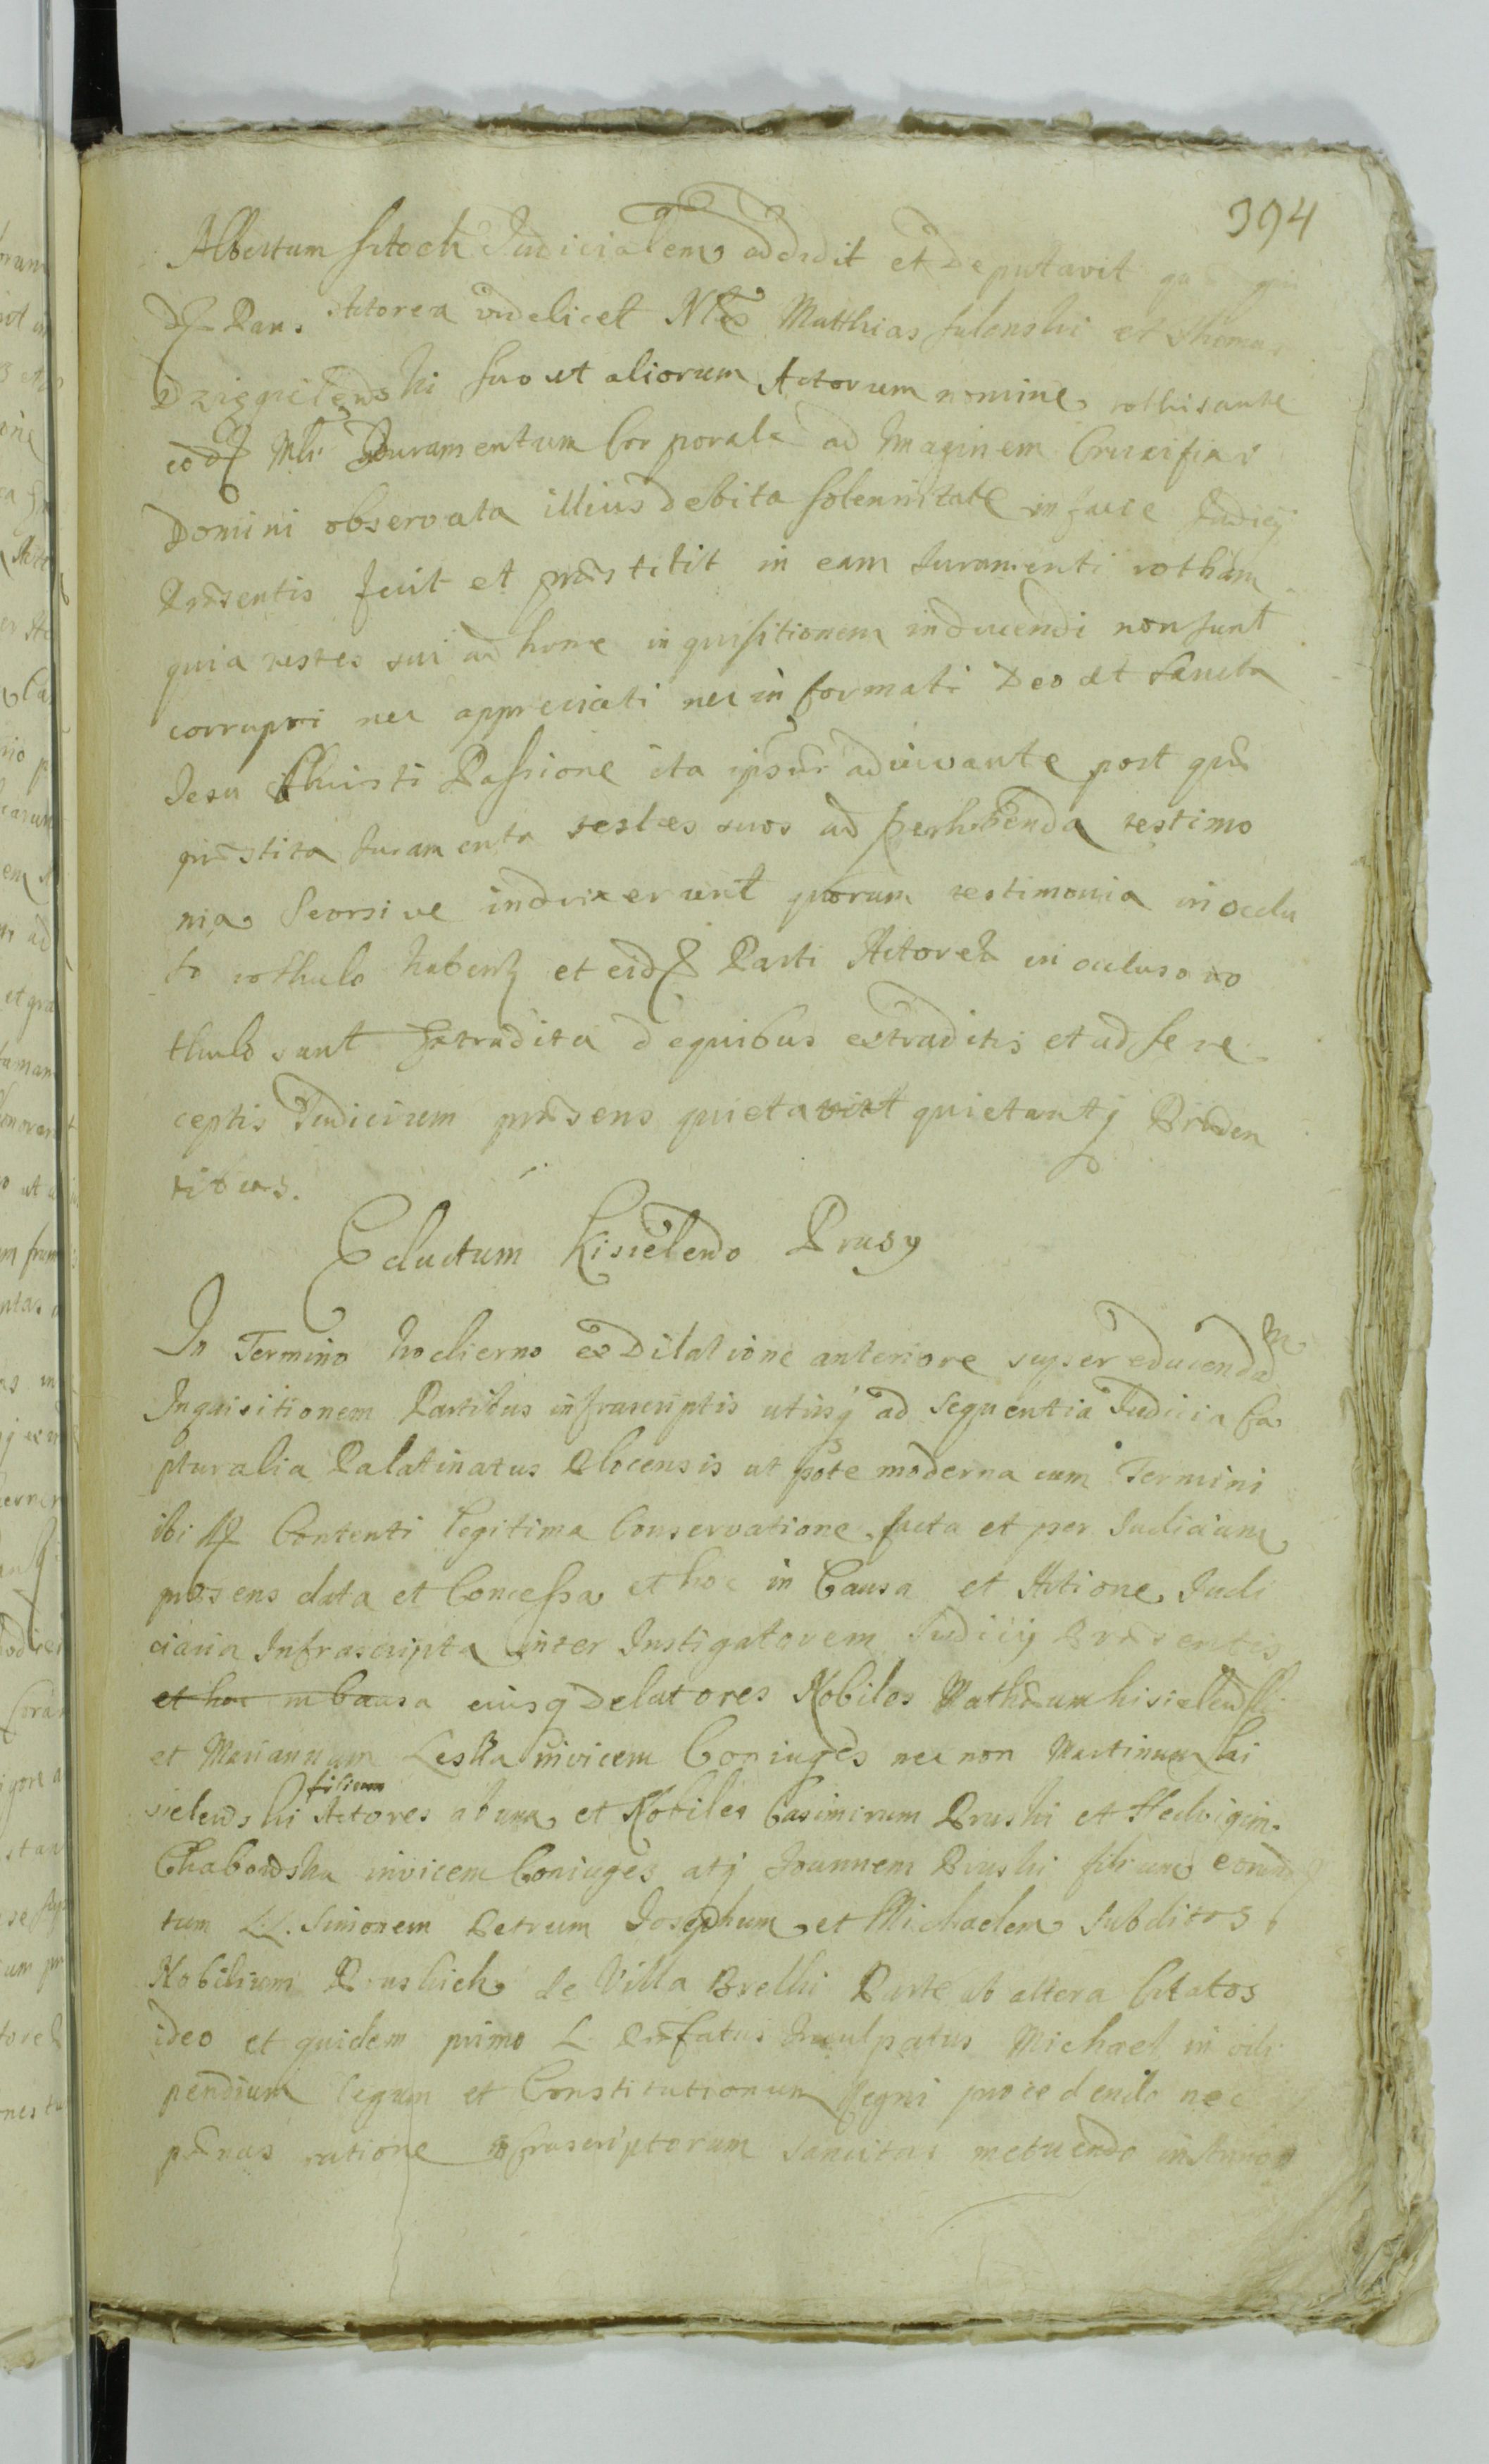 394
Albertum Judicialem addidit et Deputavit
Par. Actorea videlicet Nbles Matthias et Thomas
suo et aliorum Actorum nomine rothisante
eod Mli Iuramentum Corporale ad Imaginem Crucifixi
Domini observata illius debita solennitate in facie Judicij
Præsentis fecit et præstitit in eam Juramenti rotham
quia testes sui ad hanc inquisitionem inducendi non sunt
corrupti nec appreciati nec informati Deo et Sancta
Jesu Christi Passione ita ipsum adiuvante post quæ
præstita Juramenta testes suos ad perhibenda testimo
nia Seorsive induxerunt quorum testimonia in occlu
so rothulo habent et eid Parti Actoreæ in occluso ro
thulo sunt Extradita de quibus extraditis et ad se re
ceptis Judicium præsens quietavit quietantq Præsen
tibus.
Eductum Kisielewo Prusy
In Termino hodierno ex Dilatione anteriore super educendam
Inquisitionem Partibus infrascriptis utrisq ad Sequentia Judicia Ca
pturalia Palatinatus Plocensis ut pote moderna cum Termini
ibi Contenti legitima Conservatione facta et per Judicium
præsens data et Concessa et hoc in Causa et Actione Judi
ciaria Infrascripta inter Instigatorem Judicij Præsentis
et hoc in Causa eiusq Delatores Nobiles Mathæum Kisielewski
et Mariannam Leska invicem Coniuges nec non Martinum Ki
sielewski filium Actores ab una et Nobiles Casimirum Pruski et Hedvigim
Chabowska invicem Coniuges atq Joannem Pruski filium eorund
tum L.L. Simonem Petrum Josephum et Michaelem Subditos
Nobilium Pruskich de Villa Brelki Parte ab altera Citatos
ideo et quidem primo L. Præfatus Inculpatus Michael in vili
pendium legum et Constitutionum Regni procedendo nec
pœnas ratione infrascriptorum sancitas metuendo